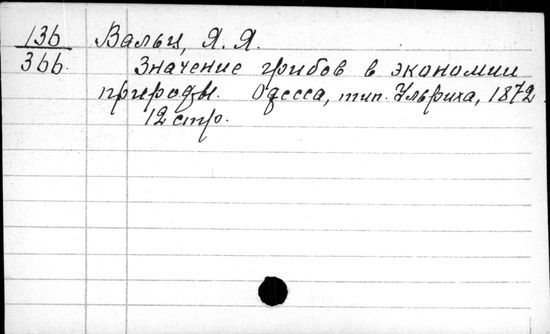 136 Вальц, Я. Я.
366. Значение грибов в экономии
природы. Одесса, тип. Ульриха, 1872.
12 стр.